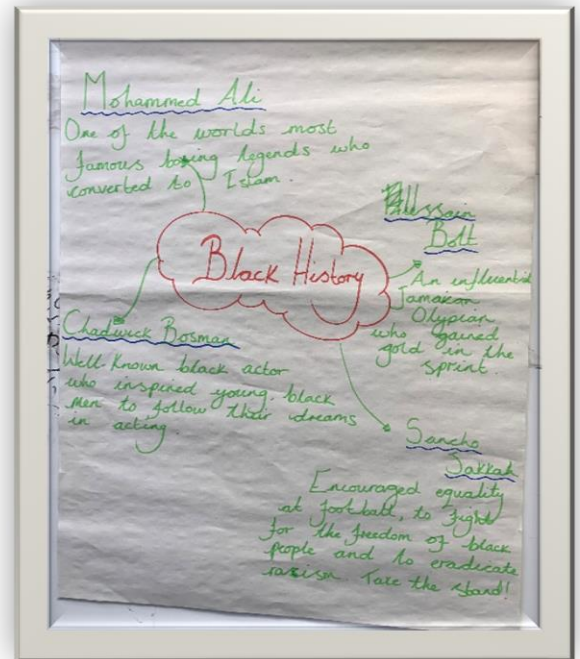 Mohammed Ali
One of the worlds most
famous boxing legends who
converted to Islam.
Black History
Bolt
An influential
Jamaican
Olypian
who gained
gold in the
sprint.
Chadwick Bosman
Well-known black actor
who inspired young black
men to follow their dreams
in acting.
Sancho
Sakkah
Encouraged equality
at football, to fight
for the freedom of black
people and to eradicate
racism. Take the stand!